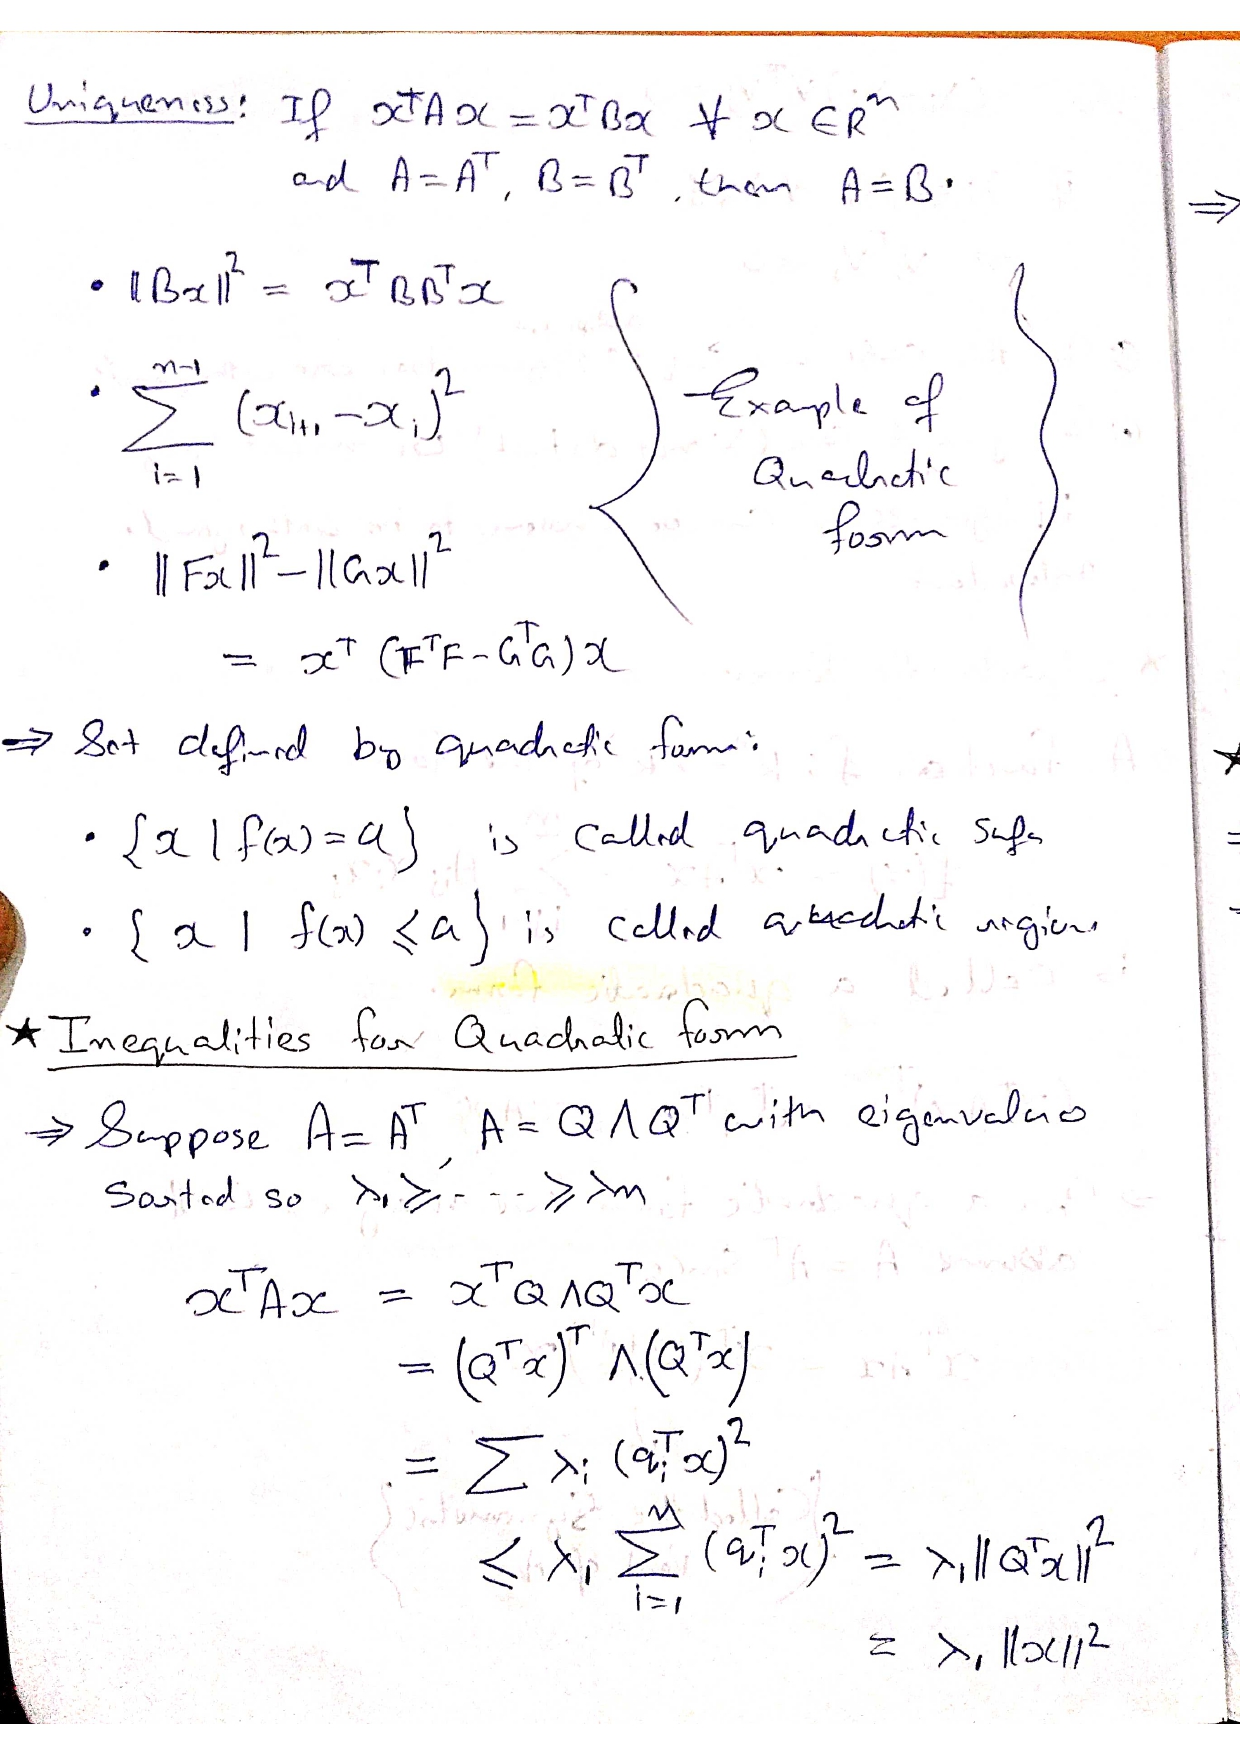 Uniqueness: If xᵀAx = xᵀBx ∀ x ∈ Rⁿ
and A = Aᵀ, B = Bᵀ, then A = B.
• ||Bx||² = xᵀBBᵀx
• ∑_{i=1}^{n-1} (x_{i+1} - x_i)²
• ||Fx||² - ||Gx||²
= xᵀ (FᵀF - GᵀG) x
{ Example of
Quadratic
form }
⇒ Set defined by quadratic form:
• {x | f(x) = a} is called quadratic
• {x | f(x) ≤ a} is called quadratic region.
★ Inequalities for Quadratic form
⇒ Suppose A = Aᵀ, A = QΛQᵀ with eigenvalues
sorted so λ₁ ≥ - - - ≥ λn
xᵀAx = xᵀQΛQᵀx
= (Qᵀx)ᵀ Λ(Qᵀx)
= ∑ λ_i (q_iᵀx)²
≤ λ₁ ∑_{i=1}^{n} (q_iᵀx)² = λ₁||Qᵀx||²
= λ₁ ||x||²
⇒
★